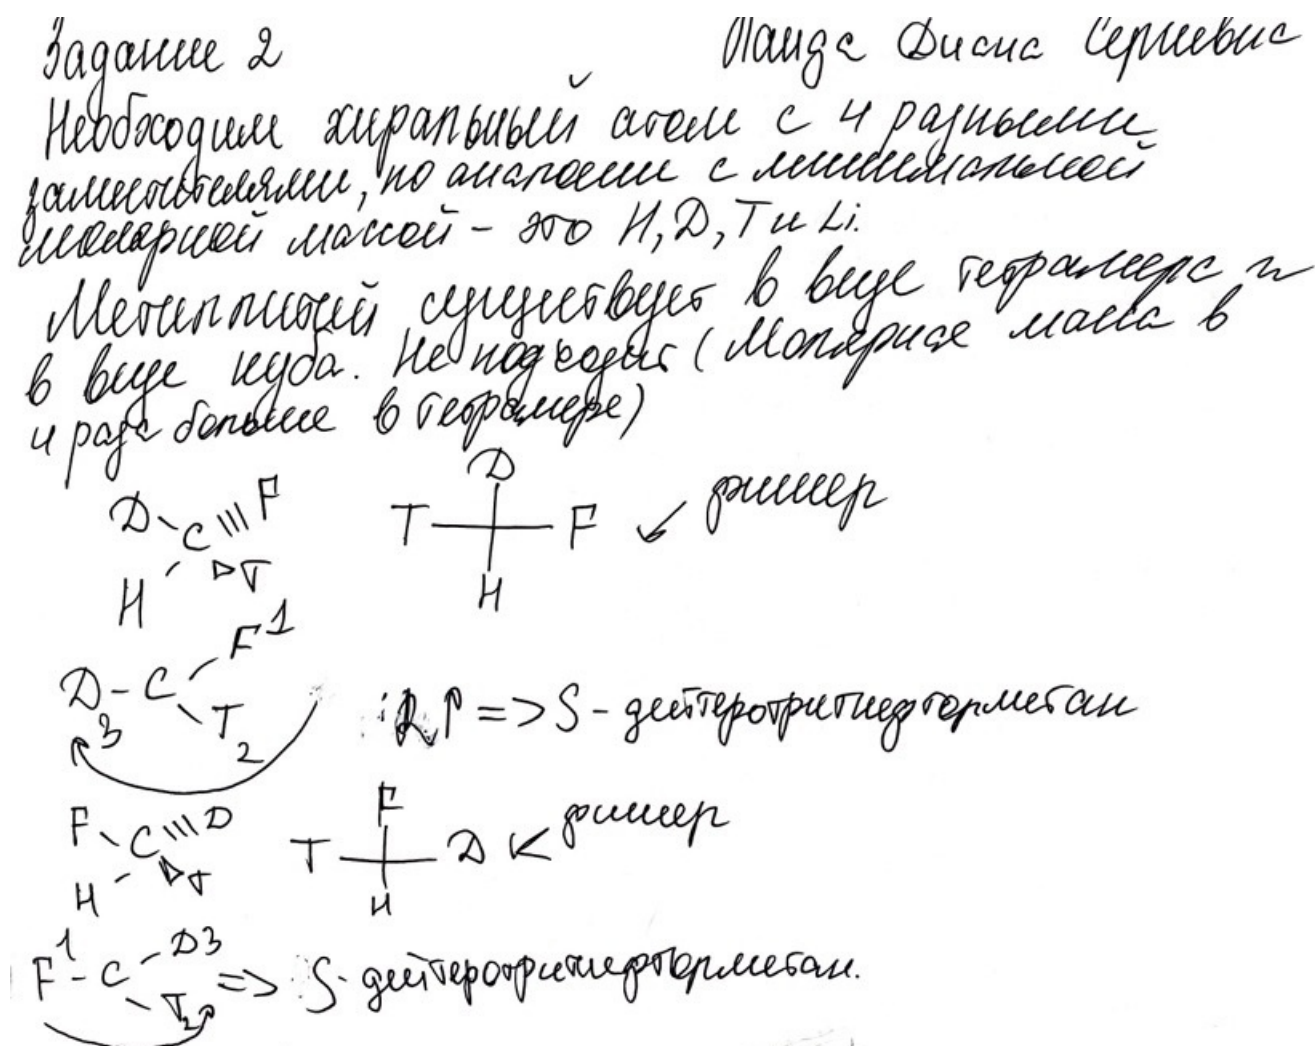 Задание 2
Диана Сергиевна
Необходим хиральный атом с 4 разными
заместителями, по аналогии с минимальной
молярной массой - это H, D, T и Li.
Метиллитий существует в виде тетрамера и
в виде куба. Не подходит (Молярная масса в
4 раза больше в тетрамере)
D C F
H T
D
T F
H
фишер
D - C F 1
3 T 2
R => S - дейтеротритиефторметан
F C D
H T
F
T D
H
фишер
1 F - C D3
T2
=> S - дейтеротритиефторметан.